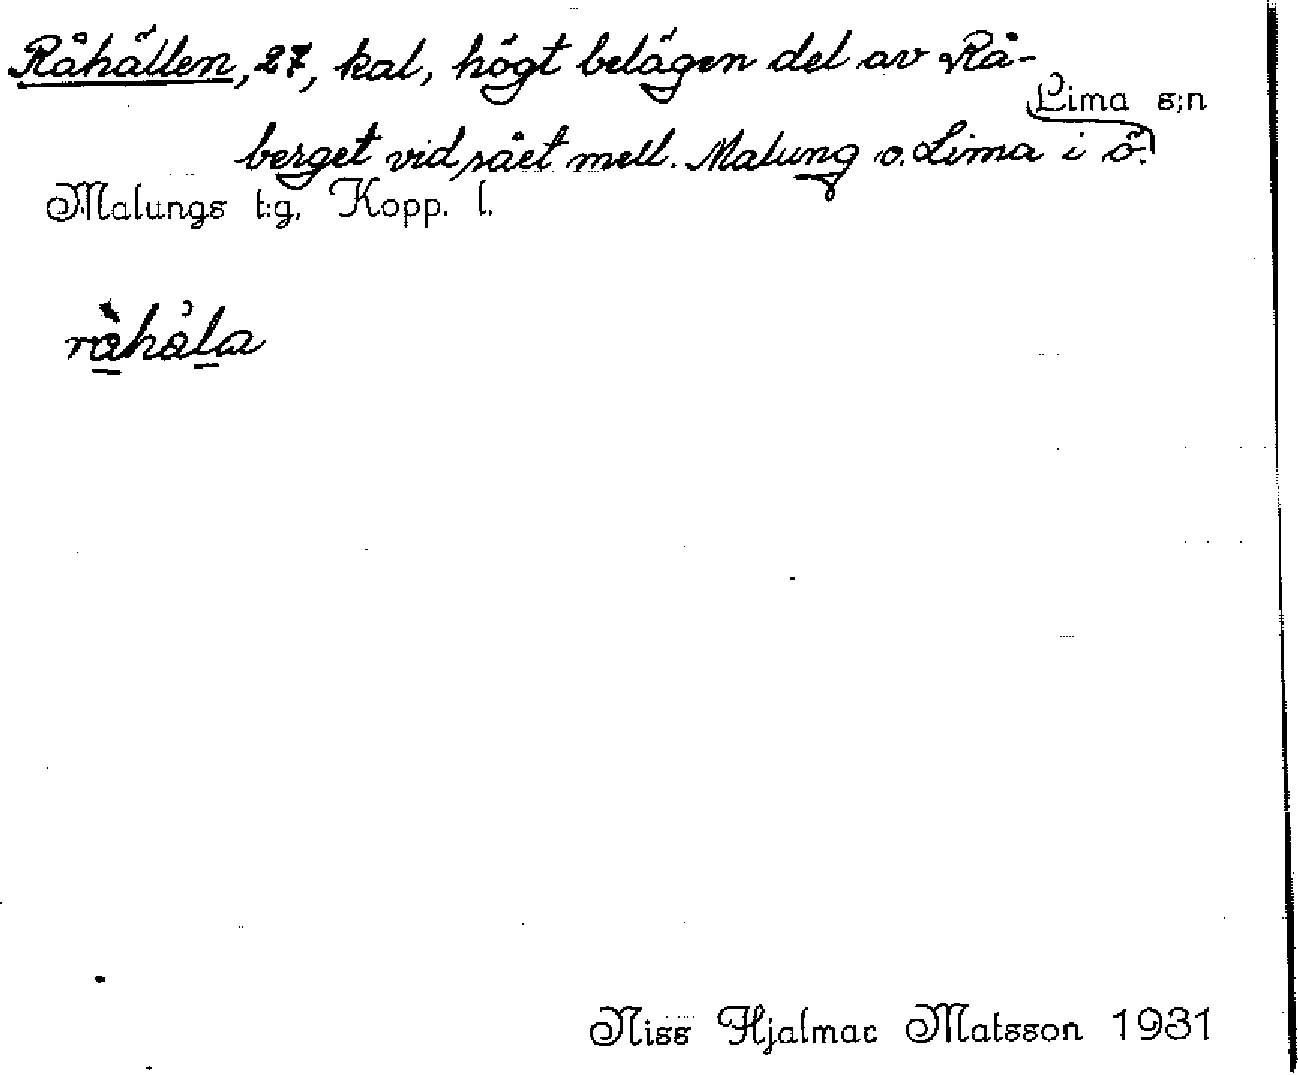 Råhällen, 27, kal, högt belägen del av Rå-
Lima s:n
berget vid rået mell. Malung o. Lima i ö.
Malungs t:g. Kopp. l.
råhåla
Niss Hjalmar Matsson 1931